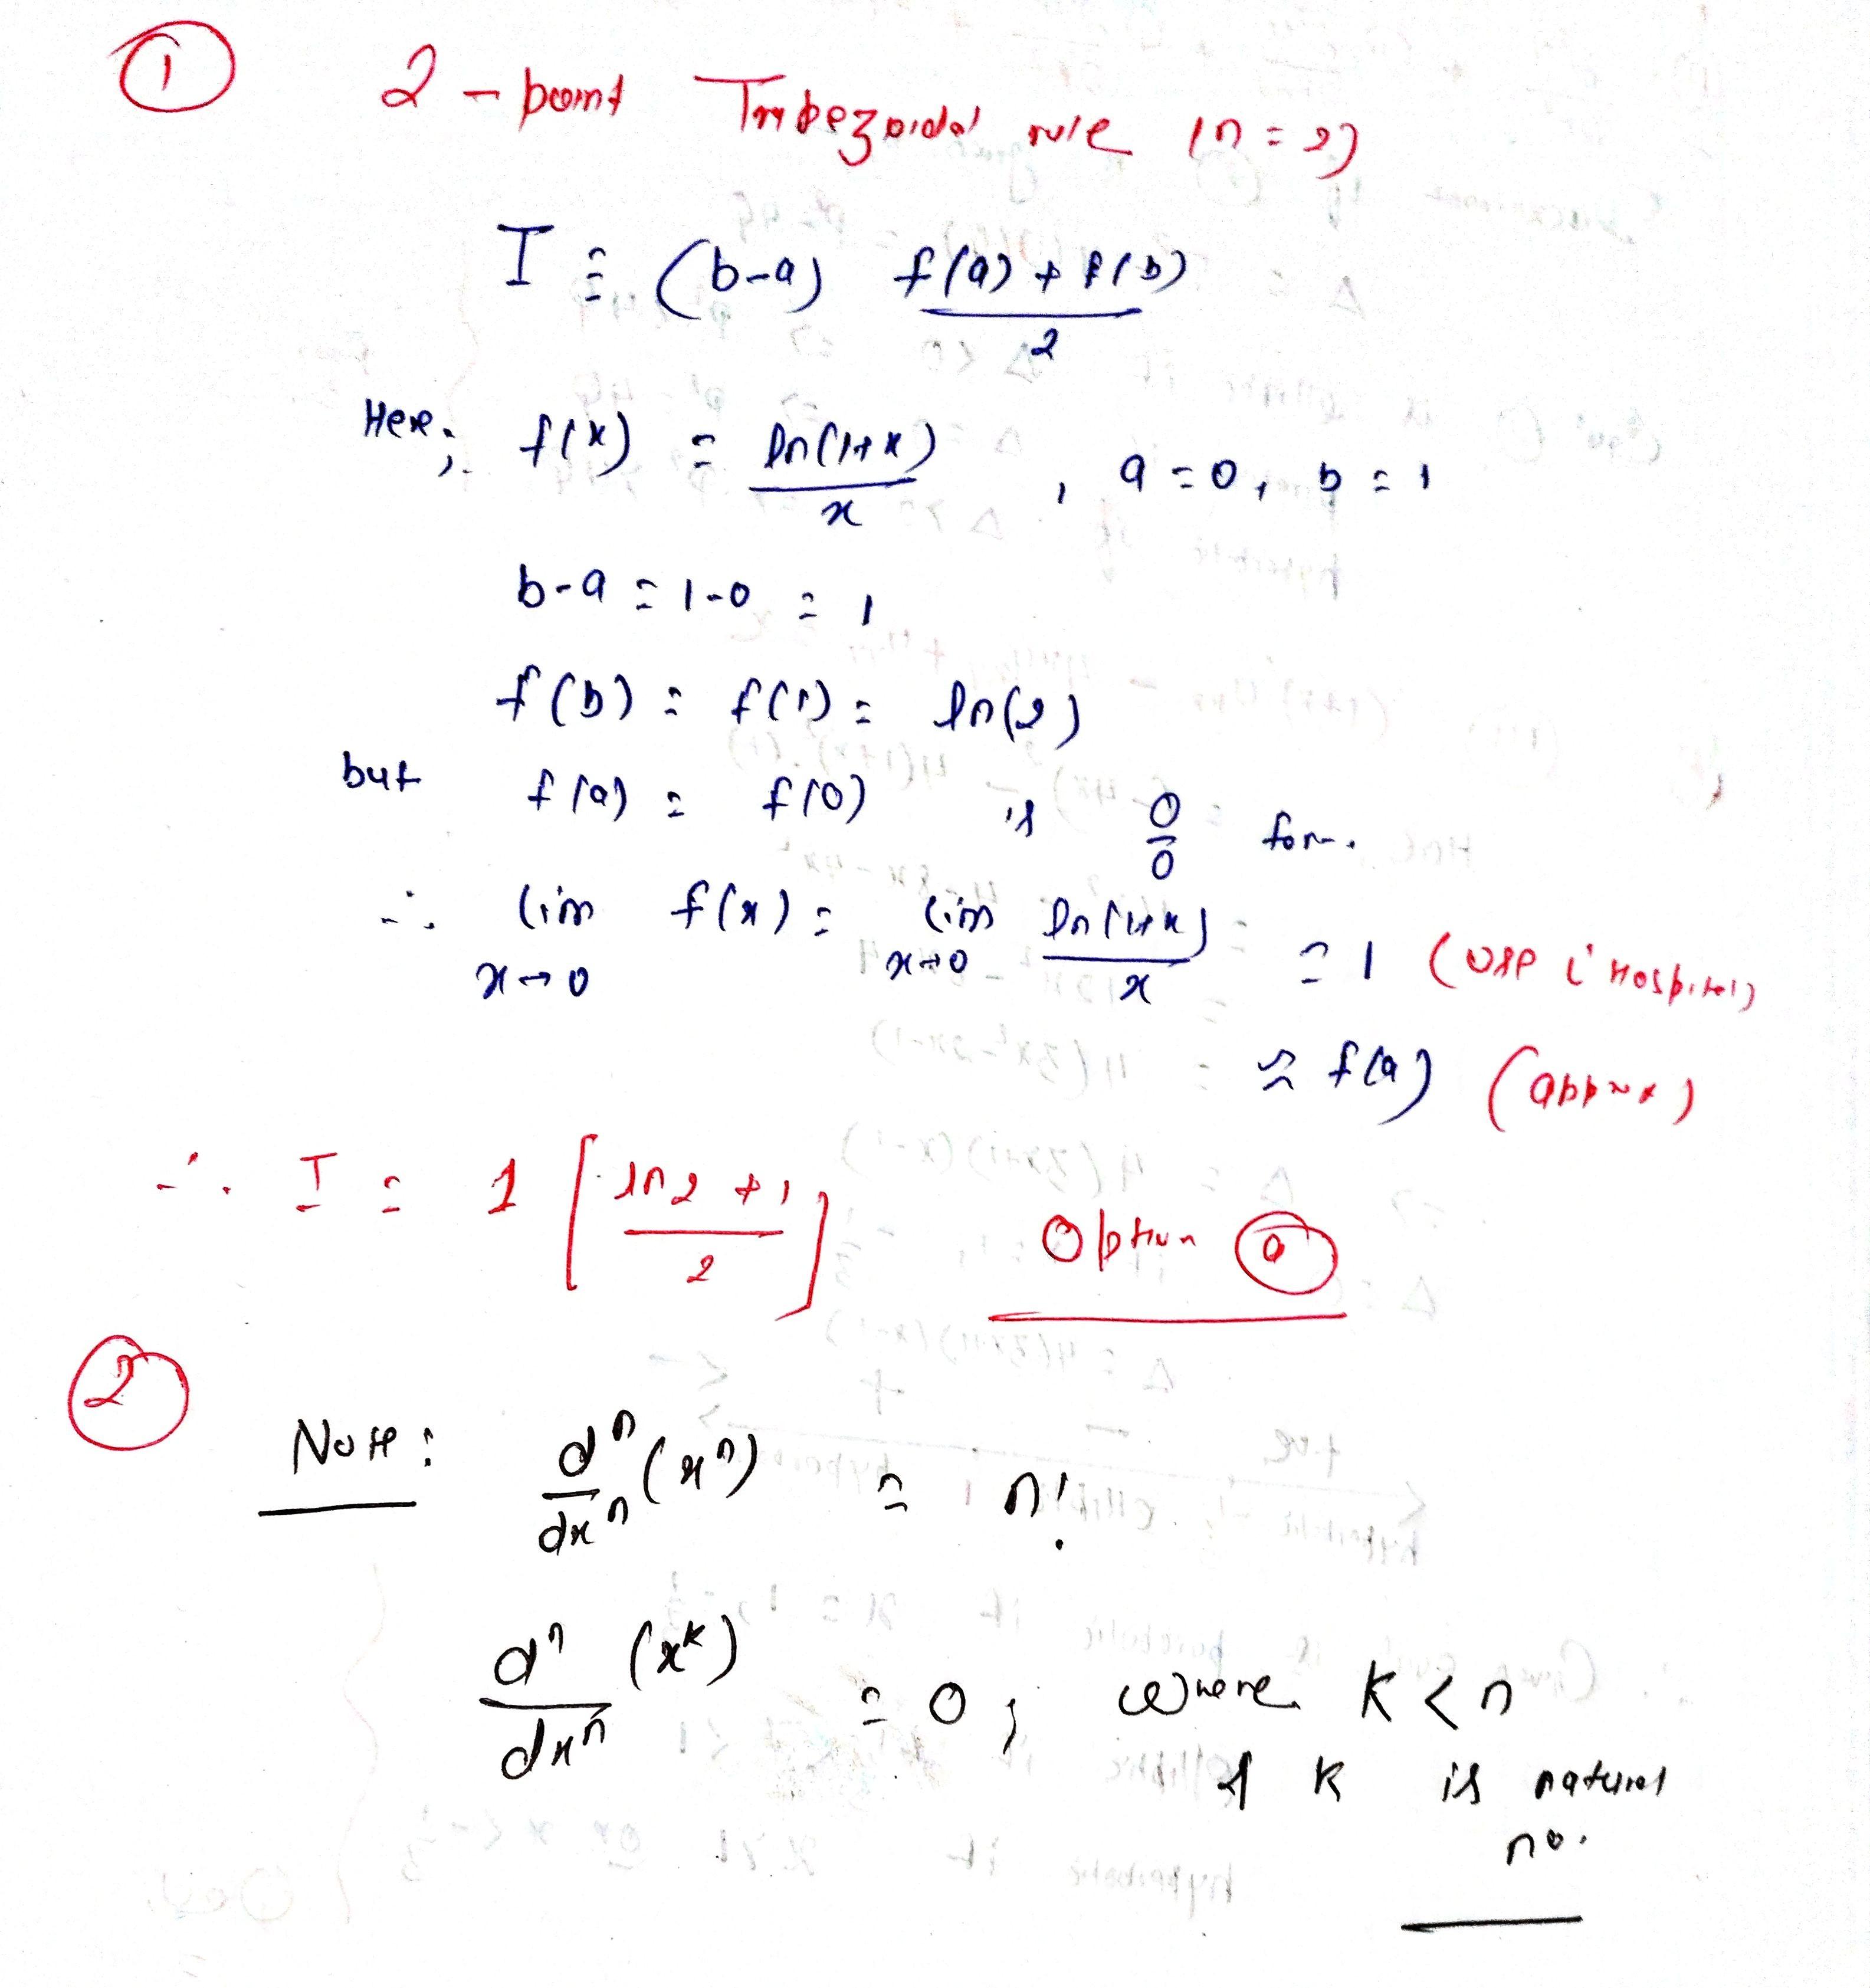 ①
2 - point Trapezoidal rule (n = 2)
I = (b-a) f(a) + f(b)
2
Here; f(x) = ln(1+x) , a = 0, b = 1
x
b-a = 1-0 = 1
f(b) = f(1) = ln(2)
but f(a) = f(0) is 0/0 form.
∴ lim f(x) = lim ln(1+x) = 1 (use L' Hospital)
x→0 x→0 x
≈ f(a) (approx)
∴ I = 1 [ ln2 + 1 ]
2
Option ⓐ
②
Note: d^n (x^n) = n!
dx^n
d^n (x^k) = 0 ; where k < n
dx^n
& k is natural
no.